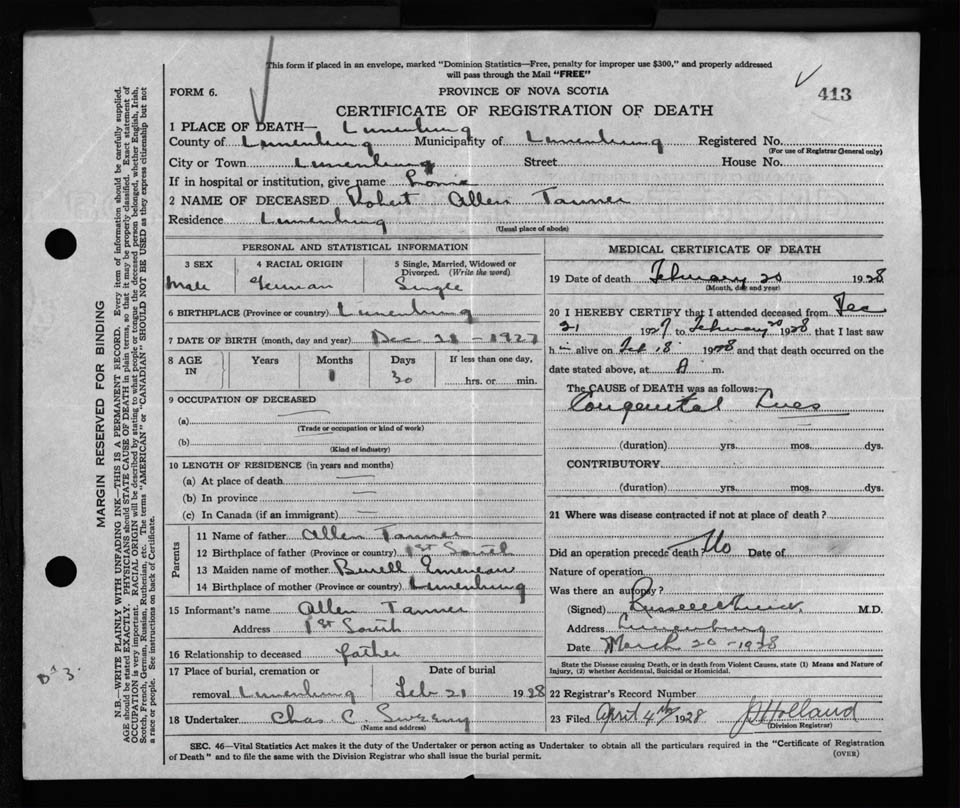 This form if placed in an envelope, marked "Dominion Statistics—Free, penalty for improper use $300," and properly addressed
will pass through the Mail "FREE"
FORM 6. PROVINCE OF NOVA SCOTIA 413
CERTIFICATE OF REGISTRATION OF DEATH
1 PLACE OF DEATH— Lunenburg
County of Lunenburg Municipality of Lunenburg Registered No.
(For use of Registrar General only)
City or Town Lunenburg Street House No.
If in hospital or institution, give name Home
2 NAME OF DECEASED Robert Allen Tanner
Residence Lunenburg
(Usual place of abode)
PERSONAL AND STATISTICAL INFORMATION
3 SEX 4 RACIAL ORIGIN 5 Single, Married, Widowed or Divorced. (Write the word)
Male German Single
6 BIRTHPLACE (Province or country) Lunenburg
7 DATE OF BIRTH (month, day and year) Dec 21 - 1927
8 AGE IN Years Months Days If less than one day,
1 30 hrs. or min.
9 OCCUPATION OF DECEASED
(a)
(Trade or occupation or kind of work)
(b)
(Kind of industry)
10 LENGTH OF RESIDENCE (in years and months)
(a) At place of death
(b) In province
(c) In Canada (if an immigrant)
Parents
11 Name of father Allen Tanner
12 Birthplace of father (Province or country) 1st South
13 Maiden name of mother
14 Birthplace of mother (Province or country) Lunenburg
15 Informant's name Allen Tanner
Address 1st South
16 Relationship to deceased father
17 Place of burial, cremation or Date of burial
removal Lunenburg Feb 21 1928
18 Undertaker Chas C. Sweeny
(Name and address)
MEDICAL CERTIFICATE OF DEATH
19 Date of death February 20 1928
(Month, day and year)
20 I HEREBY CERTIFY that I attended deceased from Dec
21 1927 to February 20 1928 that I last saw
h im alive on Feb 18 1928 and that death occurred on the
date stated above, at A m.
The CAUSE OF DEATH was as follows:
Congenital Lues
(duration) yrs. mos. dys.
CONTRIBUTORY
(duration) yrs. mos. dys.
21 Where was disease contracted if not at place of death?
Did an operation precede death No Date of
Nature of operation
Was there an autopsy?
(Signed) M.D.
Address Lunenburg
Date March 20 - 1928
State the Disease causing Death, or in death from Violent Causes, state (1) Means and Nature of
Injury, (2) whether Accidental, Suicidal or Homicidal.
22 Registrar's Record Number
23 Filed April 4th 1928 Holland
(Division Registrar)
SEC. 46—Vital Statistics Act makes it the duty of the Undertaker or person acting as Undertaker to obtain all the particulars required in the "Certificate of Registration
of Death" and to file the same with the Division Registrar who shall issue the burial permit.
(OVER)
MARGIN RESERVED FOR BINDING
N.B.—WRITE PLAINLY WITH UNFADING INK—THIS IS A PERMANENT RECORD. Every item of information should be carefully supplied.
AGE should be stated EXACTLY. PHYSICIANS should STATE CAUSE OF DEATH in plain terms, so that it may be properly classified. Exact statement of
OCCUPATION is very important. RACIAL ORIGIN will be described by stating to what people or tongue the deceased person belonged, whether English, Irish,
Scotch, French, German, Russian, Ruthenian, etc. The terms "AMERICAN" or "CANADIAN" SHOULD NOT BE USED as they express citizenship but not
a race or people. See instructions on back of Certificate.